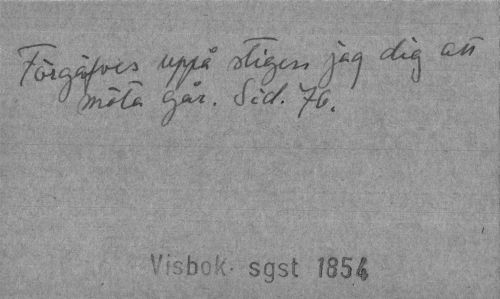 Förgäfves uppå stigen jag dig att
möta går. Sid. 76.
Visbok. sgst 1854